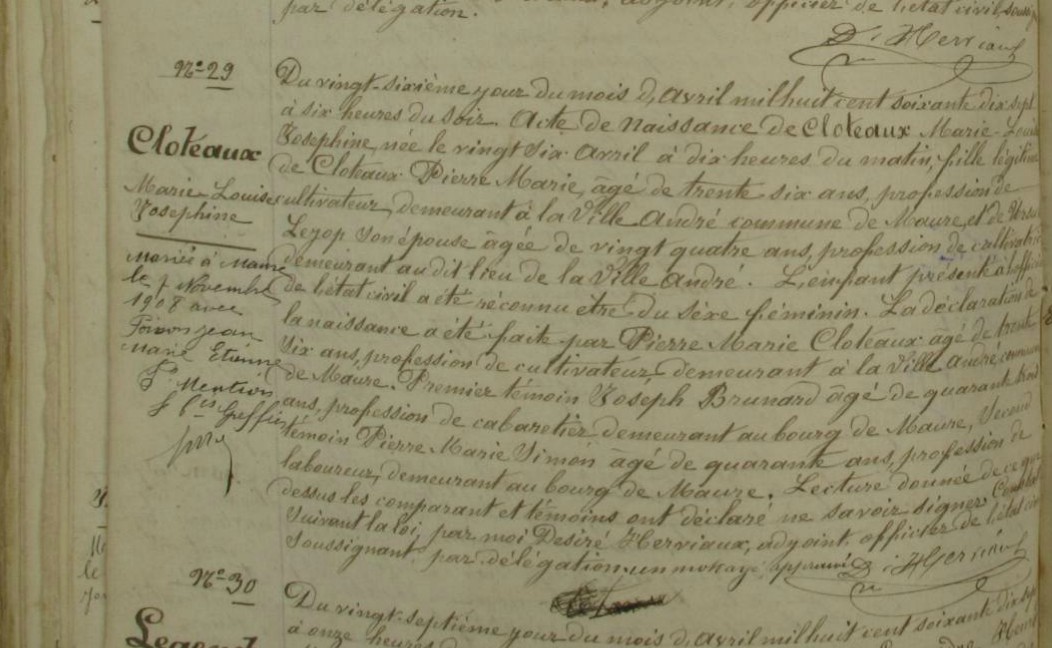 par délégation.
D. Herviaux
N° 29
Cloteaux
Marie-Louise
Josephine
Mariée à Maure
le 7 Novembre
1908 avec
Poirson Jean
Marie Etienne
Pr Mention
Greffier
Du vingt-sixième jour du mois d'avril mil huit cent soixante dix sept
à six heures du soir. Acte de naissance de Cloteaux Marie-Louise
Josephine, née le vingt six avril à dix heures du matin, fille légitime
de Cloteaux Pierre Marie, âgé de trente six ans, profession de
cultivateur, demeurant à la Ville André commune de Maure, et de
Leyop son épouse âgée de vingt quatre ans, profession de
demeurant audit lieu de la Ville André. L'enfant présenté à l'officier
de l'état civil a été réconnu être du sèxe féminin. La déclaration de
la naissance a été faite par Pierre Marie Cloteaux âgé de trente
six ans, profession de cultivateur demeurant à la Ville André,
de Maure. Premier témoin Joséph Brunard âgé de quarante trois
ans, profession de cabaretier demeurant au bourg de Maure, Second
témoin Pierre Marie Simon âgé de quarante ans, profession de
laboureur, demeurant au bourg de Maure. Lecture donnée de ce que
dessus les comparant et témoins ont déclaré ne savoir signer.
suivant la loi, par moi Desiré Herviaux, adjoint, officier de l'état
soussignant par délégation. un mot rayé
D. Herviaux
N° 30
Legend
Du vingt-septième jour du mois d'avril mil huit cent soixante dix sept
à onze heures